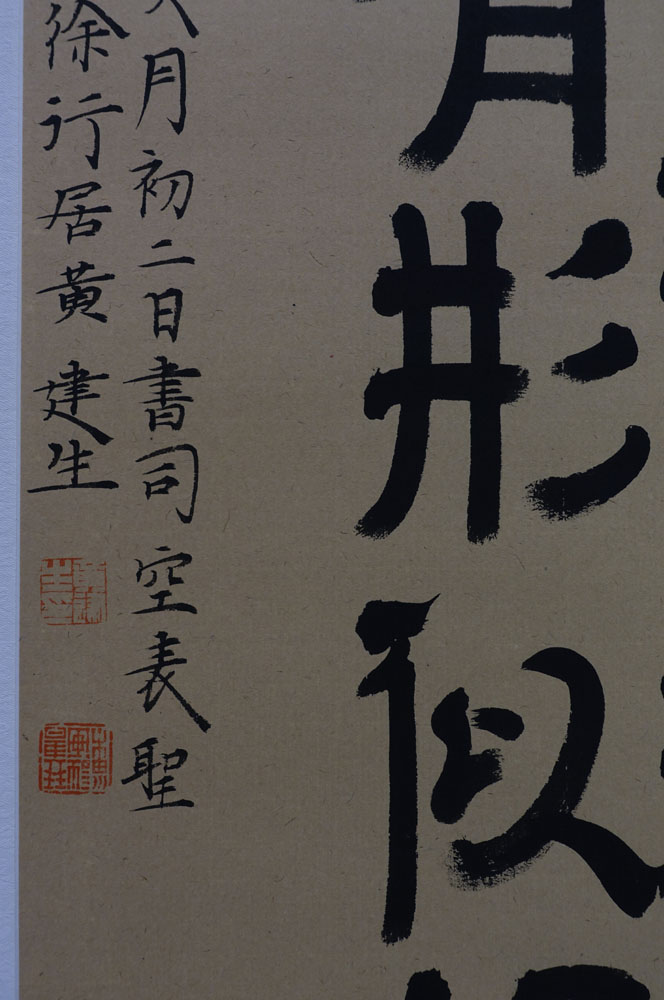 有形似
月初二日書司空表聖
徐行居黄建生